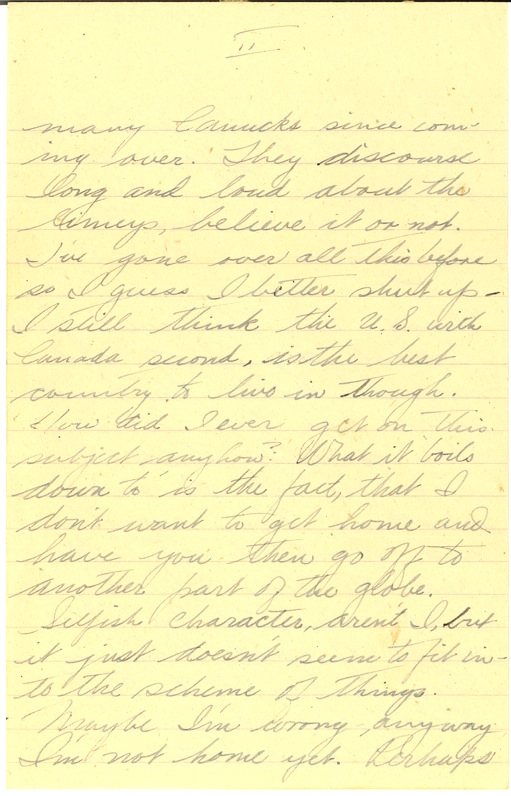 II
many Canucks since com-
ing over. They discourse
long and loud about the
Limeys, believe it or not.
I've gone over all this before
so I guess I better shut up -
I still think the U.S. with
Canada second, is the best
country to live in though.
How did I ever get on this
subject anyhow? What it boils
down to is the fact, that I
don't want to get home and
have you then go off to
another part of the globe.
Selfish character, aren't I, but
it just doesn't seem to fit in-
to the scheme of things.
Maybe I'm wrong, anyway
I'm not home yet. Perhaps